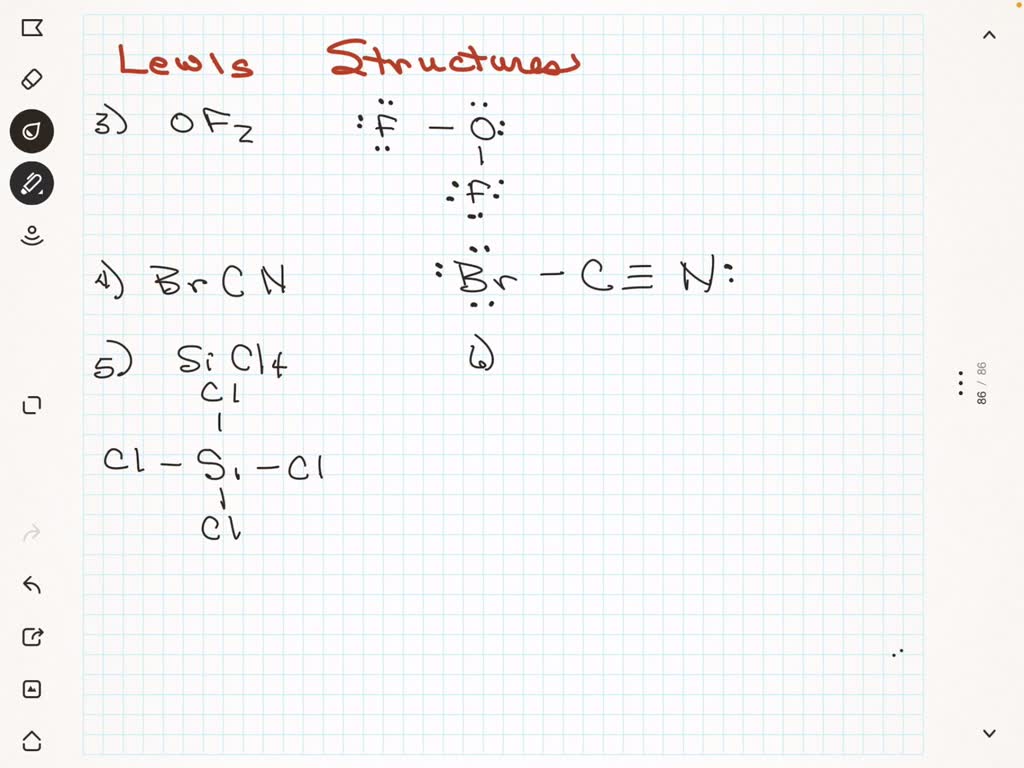 Lewis Structures
3) OF2 :F̤̈ – Ö:
|
:F̤:
4) BrCN :B̤̈r – C ≡ N:
5) SiCl4 6)
Cl
|
Cl – Si – Cl
|
Cl
86 / 86